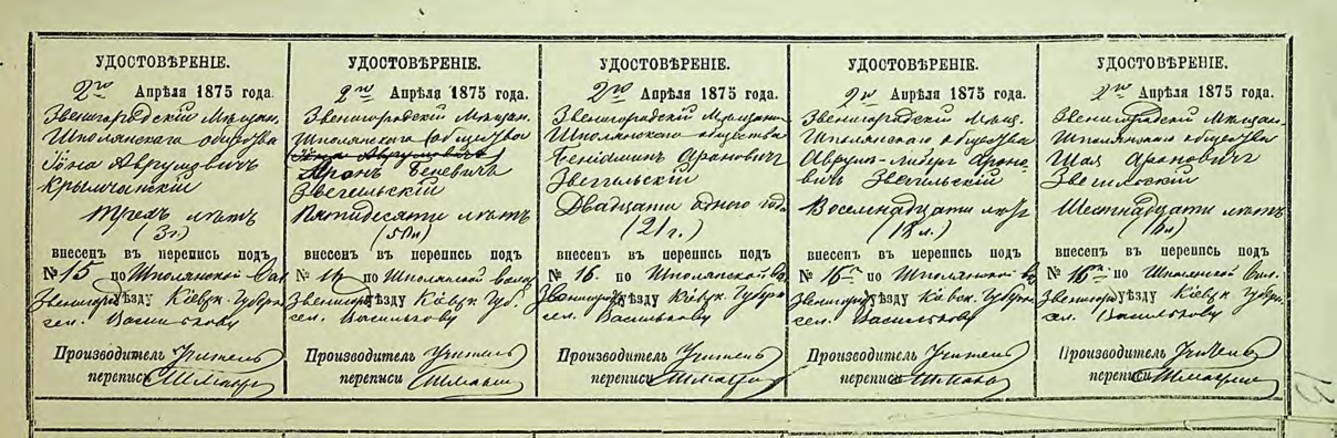 УДОСТОВѢРЕНІЕ.
2го Апрѣля 1875 года.
Звенигородскій Мѣщан.
Шполянскаго общества
Іона Аврумовичъ
Крымчанскій
Трехъ лѣтъ
(3 г.)
внесенъ въ перепись подъ
№ 15 по Шполянской Вол.
Звенигород. уѣзду Кіевск. Губерн.
сел. Василькову
Производитель Учитель
переписи
УДОСТОВѢРЕНІЕ.
2го Апрѣля 1875 года.
Звенигородскій Мѣщан.
Шполянскаго общества
Іона Аврумовичъ
Аронъ Беневичъ
Звегильскій
Пятидесяти лѣтъ
(50 л)
внесенъ въ перепись подъ
№ 16 по Шполянской волос.
Звенигор. уѣзду Кіевск. Губ.
сел. Василькову
Производитель Учитель
переписи
УДОСТОВѢРЕНІЕ.
2го Апрѣля 1875 года.
Звенигородскій Мѣщанин
Шполянскаго общества
Беніаминъ Ароновичъ
Звегильскій
Двадцати одного года
(21 г.)
внесенъ въ перепись подъ
№ 16. по Шполянской Во.
Звенигород. уѣзду Кіевск. Губерн.
сел. Василькову
Производитель Учитель
переписи
УДОСТОВѢРЕНІЕ.
2го Апрѣля 1875 года.
Звенигородскій Мѣщ.
Шполянскаго общества
Аврум-Либер Ароно-
вичъ Звегильскій
Восемнадцати лѣтъ
(18 л.)
внесенъ въ перепись подъ
№ 16 по Шполянской во
Звенигород. уѣзду Кіевск. Губерн.
сел. Василькову
Производитель Учитель
переписи
УДОСТОВѢРЕНІЕ.
2го Апрѣля 1875 года.
Звенигородскій Мѣщан.
Шполянскаго общества
Шая Ароновичъ
Звегильскій
Шестнадцати лѣтъ
внесенъ въ перепись подъ
№ 16 по Шполянской Вол.
Звенигор. уѣзду Кіевск. Губерн.
сел. Василькову
Производитель Учитель
переписи